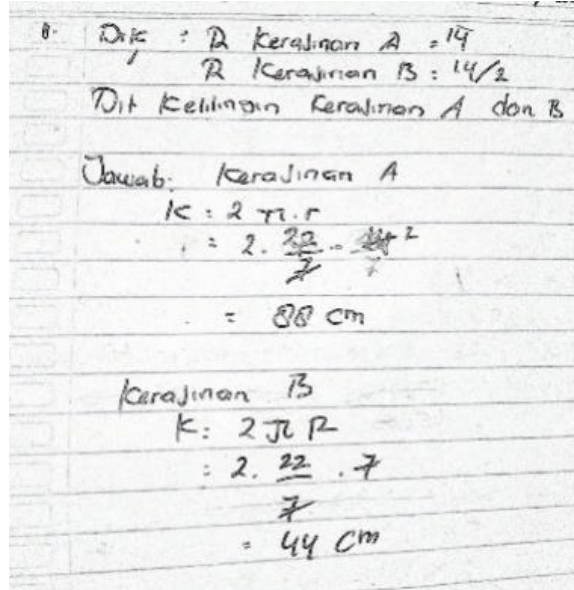 8. Dik : R Kerajinan A = 14
R Kerajinan B : 14/2
Dit Kelilingin Kerajinan A dan B
Jawab: Kerajinan A
K : 2 π . r
= 2 . 22/7 . 14 2
= 88 cm
Kerajinan B
K : 2 π R
: 2 . 22/7 . 7
= 44 cm